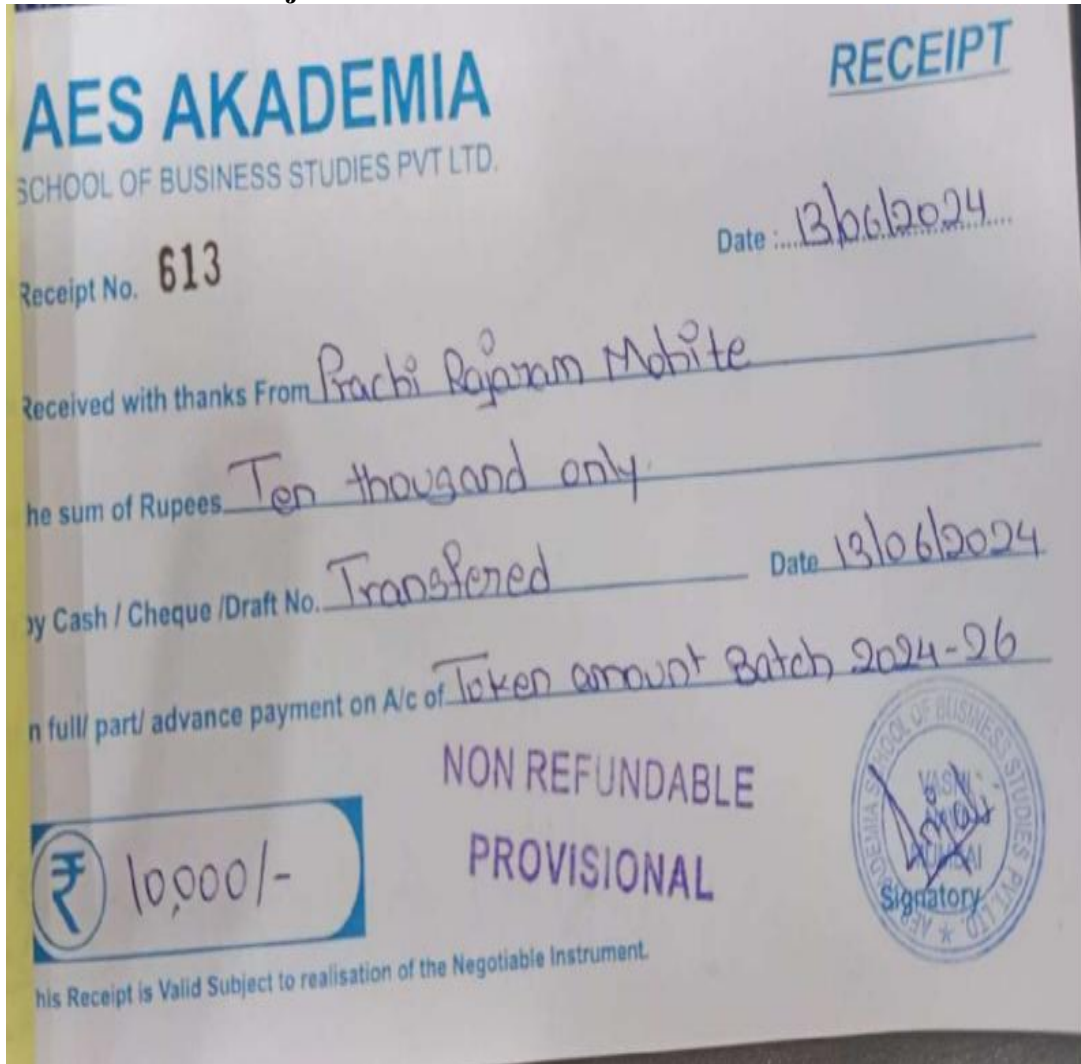 AES AKADEMIA
RECEIPT
SCHOOL OF BUSINESS STUDIES PVT LTD.
Receipt No. 613
Date : 13/06/2024
Received with thanks From Prachi Rajaram Mohite
he sum of Rupees Ten thougand only.
by Cash / Cheque /Draft No. Transfered Date 13/06/2024
n full/ part/ advance payment on A/c of Token amount Batch 2024-26
NON REFUNDABLE
PROVISIONAL
₹ 10,000/-
SCHOOL OF BUSINESS STUDIES PVT. LTD.
VASHI
Signatory
his Receipt is Valid Subject to realisation of the Negotiable Instrument.